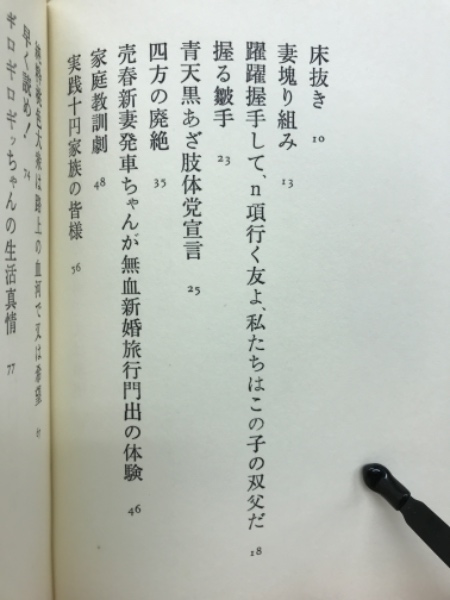 床抜き 10
妻塊り組み 13
躍躍握手して、n項行く友よ、私たちはこの子の双父だ 18
握る皺手 23
青天黒あざ肢体党宣言 25
四方の廃絶 35
売春新妻発車ちゃんが無血新婚旅行門出の体験 46
家庭教訓劇 48
実践十円家族の皆様 56
は路上の血河で又は希望
早く諦め! 74
ギロギロギッちゃんの生活真情 77